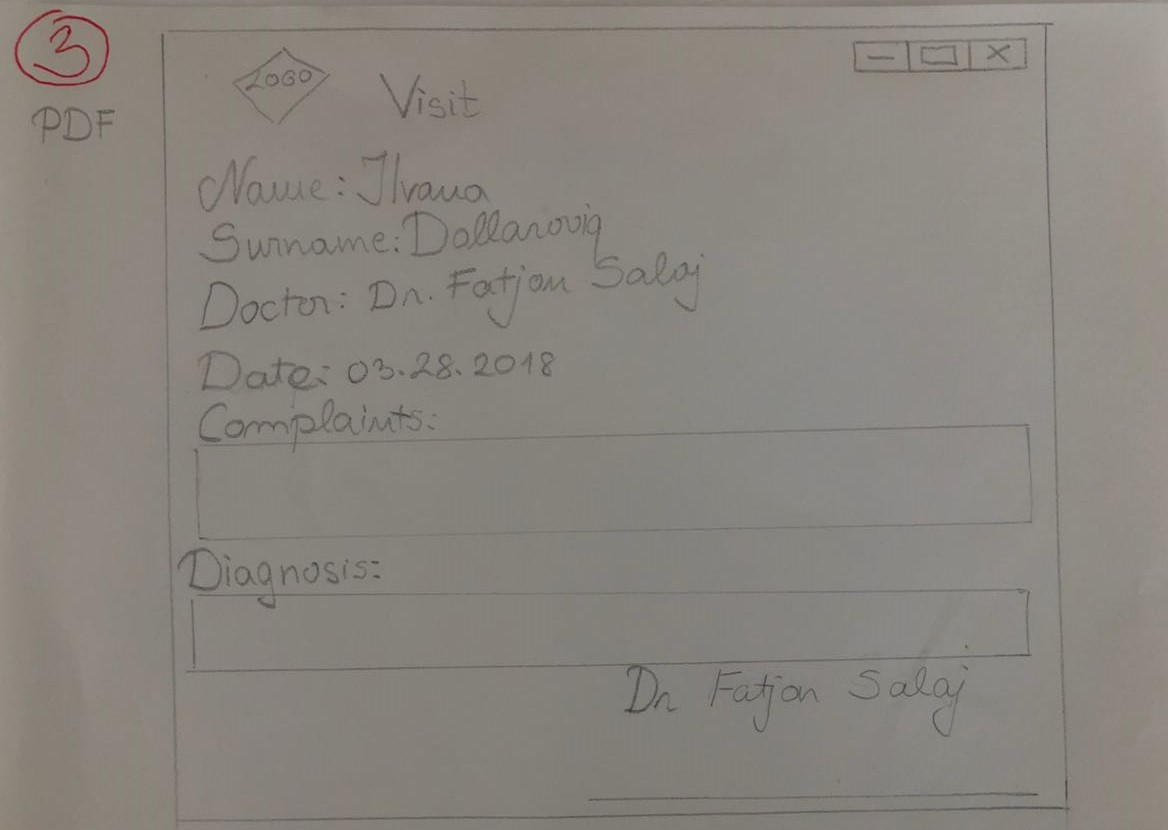 3
PDF
LOGO
Visit
Name: Ilvana
Surname: Dollaroviq
Doctor: Dr. Fatjon Salaj
Date: 03.28.2018
Complaints:
Diagnosis:
Dr Fatjon Salaj